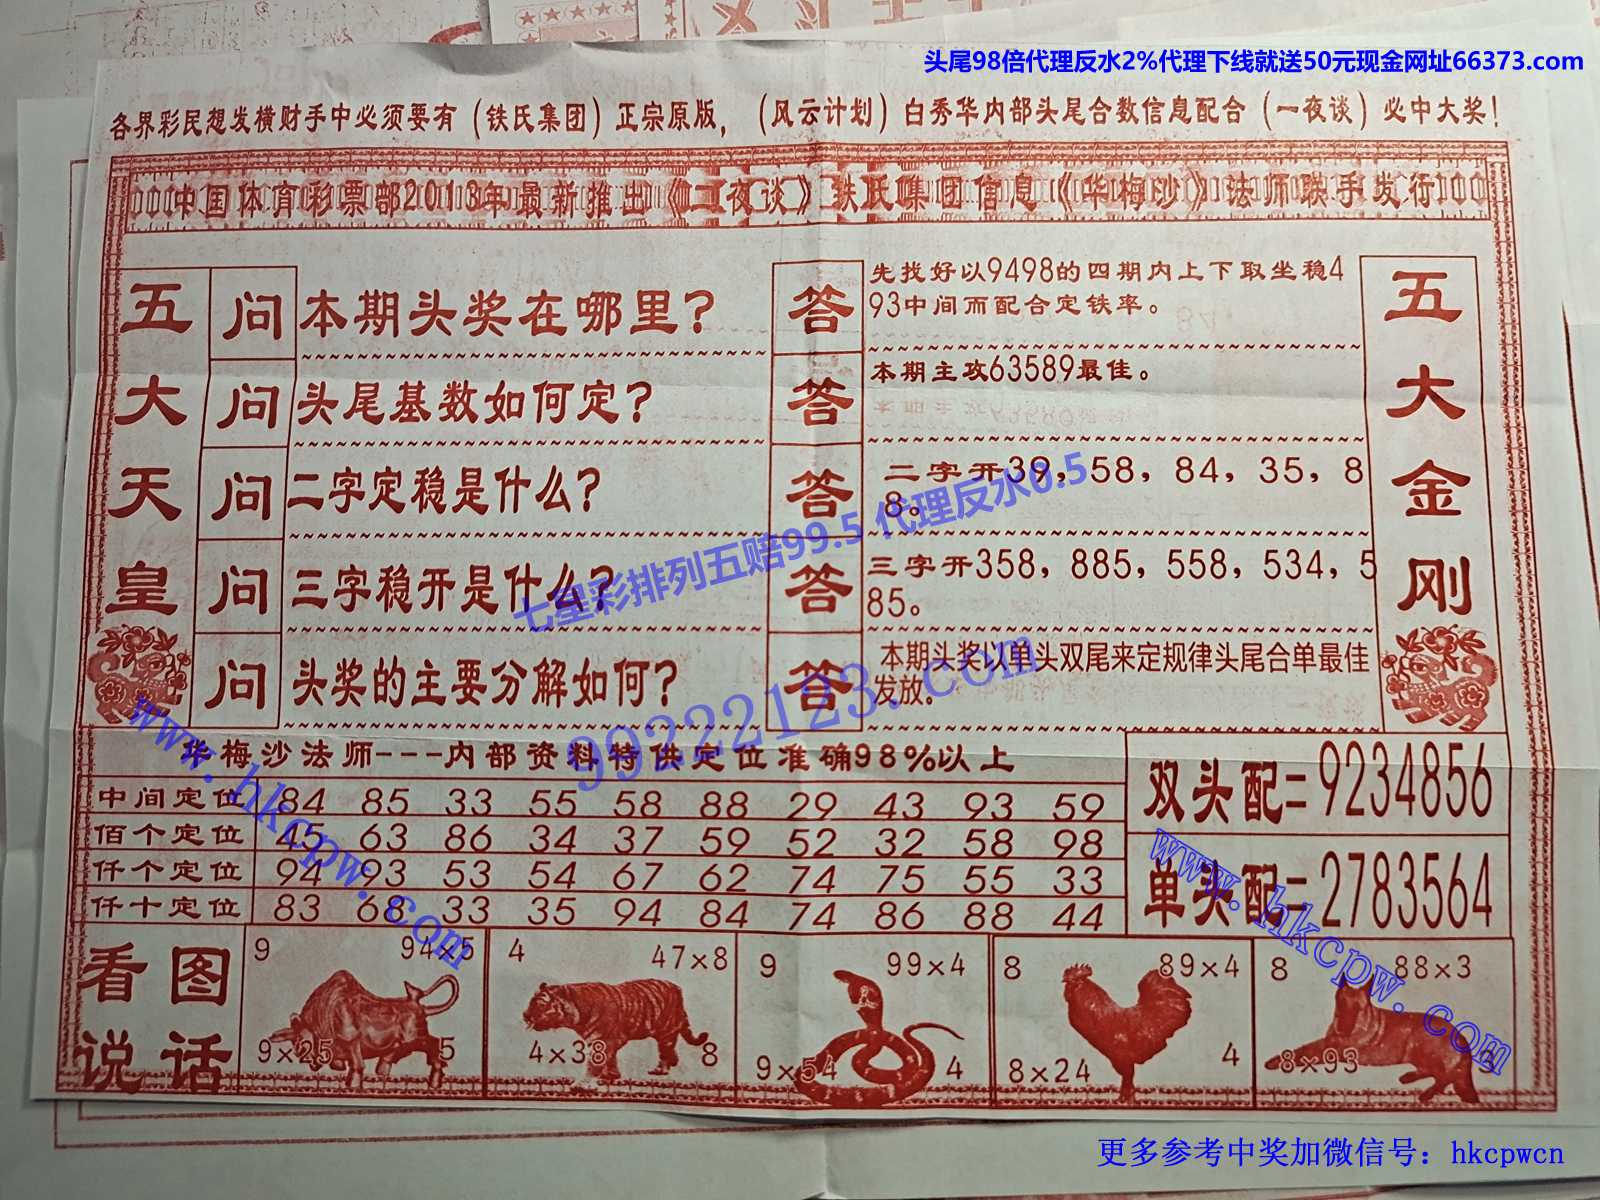 头尾98倍代理反水2%代理下线就送50元现金网址66373.com
各界彩民想发横财手中必须要有（铁氏集团）正宗原版，（风云计划）白秀华内部头尾合数信息配合（一夜谈）必中大奖！
中国体育彩票部2013年最新推出《一夜谈》铁氏集团信息《华梅沙》法师联手发行
五大天皇
问 本期头奖在哪里？
答 先找好以9498的四期内上下取坐稳4
93中间而配合定铁率。
问 头尾基数如何定？
答 本期主攻63589最佳。
问 二字定稳是什么？
答 二字开39，58，84，35，8
8。
问 三字稳开是什么？
答 三字开358，885，558，534，5
85。
问 头奖的主要分解如何？
答 本期头奖以单头双尾来定规律头尾合单最佳
发放。
五大金刚
七星彩排列五赔99.5 代理反水0.5
99222123.com
www.hkcpw.com
华梅沙法师---内部资料特供定位准确98%以上
中间定位 84 85 33 55 58 88 29 43 93 59
佰个定位 45 63 86 34 37 59 52 32 58 98
仟个定位 94 93 53 54 67 62 74 75 55 33
仟十定位 83 68 33 35 94 84 74 86 88 44
双头配=9234856
单头配=2783564
www.hkcpw.com
看图
说话
9 94×5
9×25 5
4 47×8
4×38 8
9 99×4
9×54 4
8 89×4
8×24 4
8 88×3
8×93
更多参考中奖加微信号：hkcpwcn